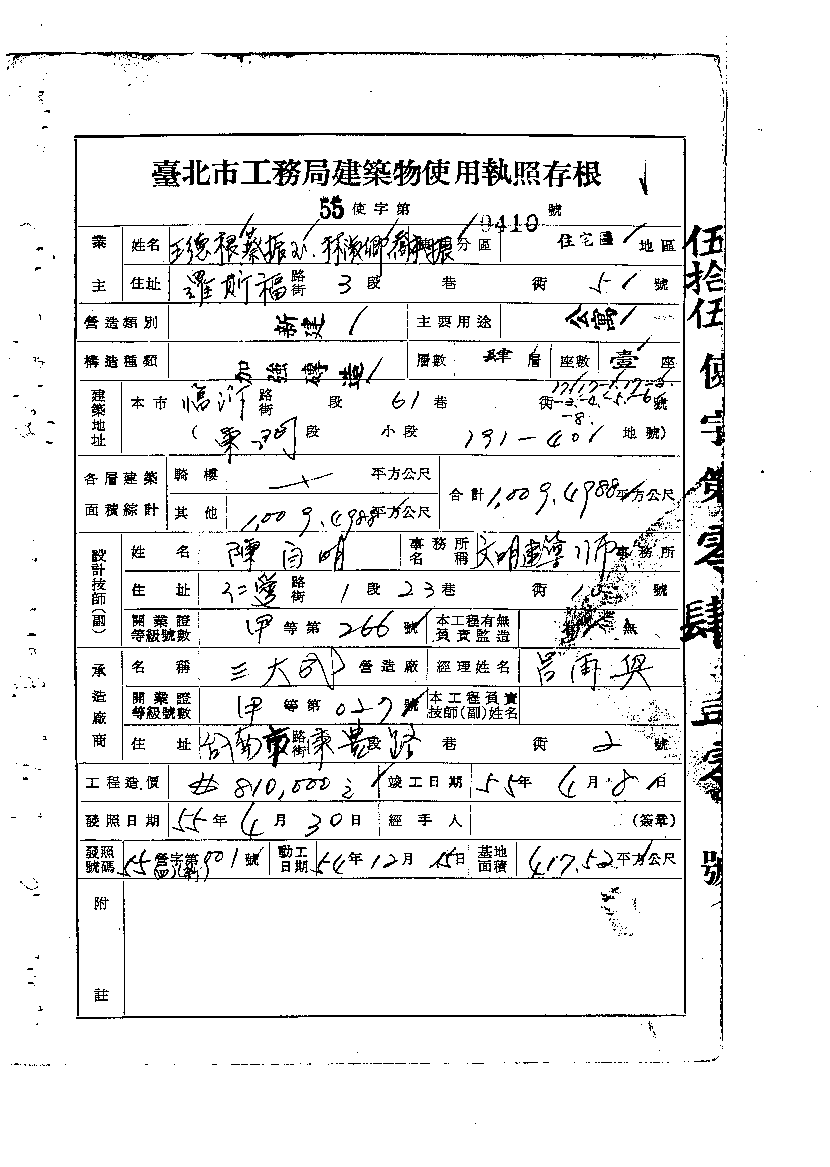 臺北市工務局建築物使用執照存根
55 使字第 0410 號
業主 姓名 王德根 蔡振 林淑卿 分區 住宅區 地區
住址 羅斯福 路街 3 段 巷 衖 51 號
營造類別 新建 主要用途 公寓
構造種類 加強磚造 層數 肆 層 座數 壹 座
建築地址 本市 臨沂 路街 段 61 巷 衖 17, 17-1, 17-2 號
-3, -4, -5, -6
-8
( 東門 段 小段 191-401 地號)
各層建築面積綜計 騎樓 平方公尺 合計 1,009.4988 平方公尺
其他 1,009.4988 平方公尺
設計技師(副) 姓名 陳 明 事務所名稱 文明建築師 事務所
住址 仁愛 路街 1 段 23 巷 衖 號
開業證等級號數 甲 等第 266 號 本工程有無負責監造 無
承造廠商 名稱 三大 營造廠 經理姓名 呂再興
開業證等級號數 甲 等第 027 號 本工程負責技師(副)姓名
住址 台南市 路街 東豊 段 路 巷 衖 2 號
工程造價 810,000 竣工日期 55 年 4 月 8 日
發照日期 55 年 4 月 30 日 經手人 (簽章)
發照號碼 55 營字第 901 號 動工日期 54 年 12 月 15 日 基地面積 417.52 平方公尺
附註
伍拾伍使字第零肆壹零號